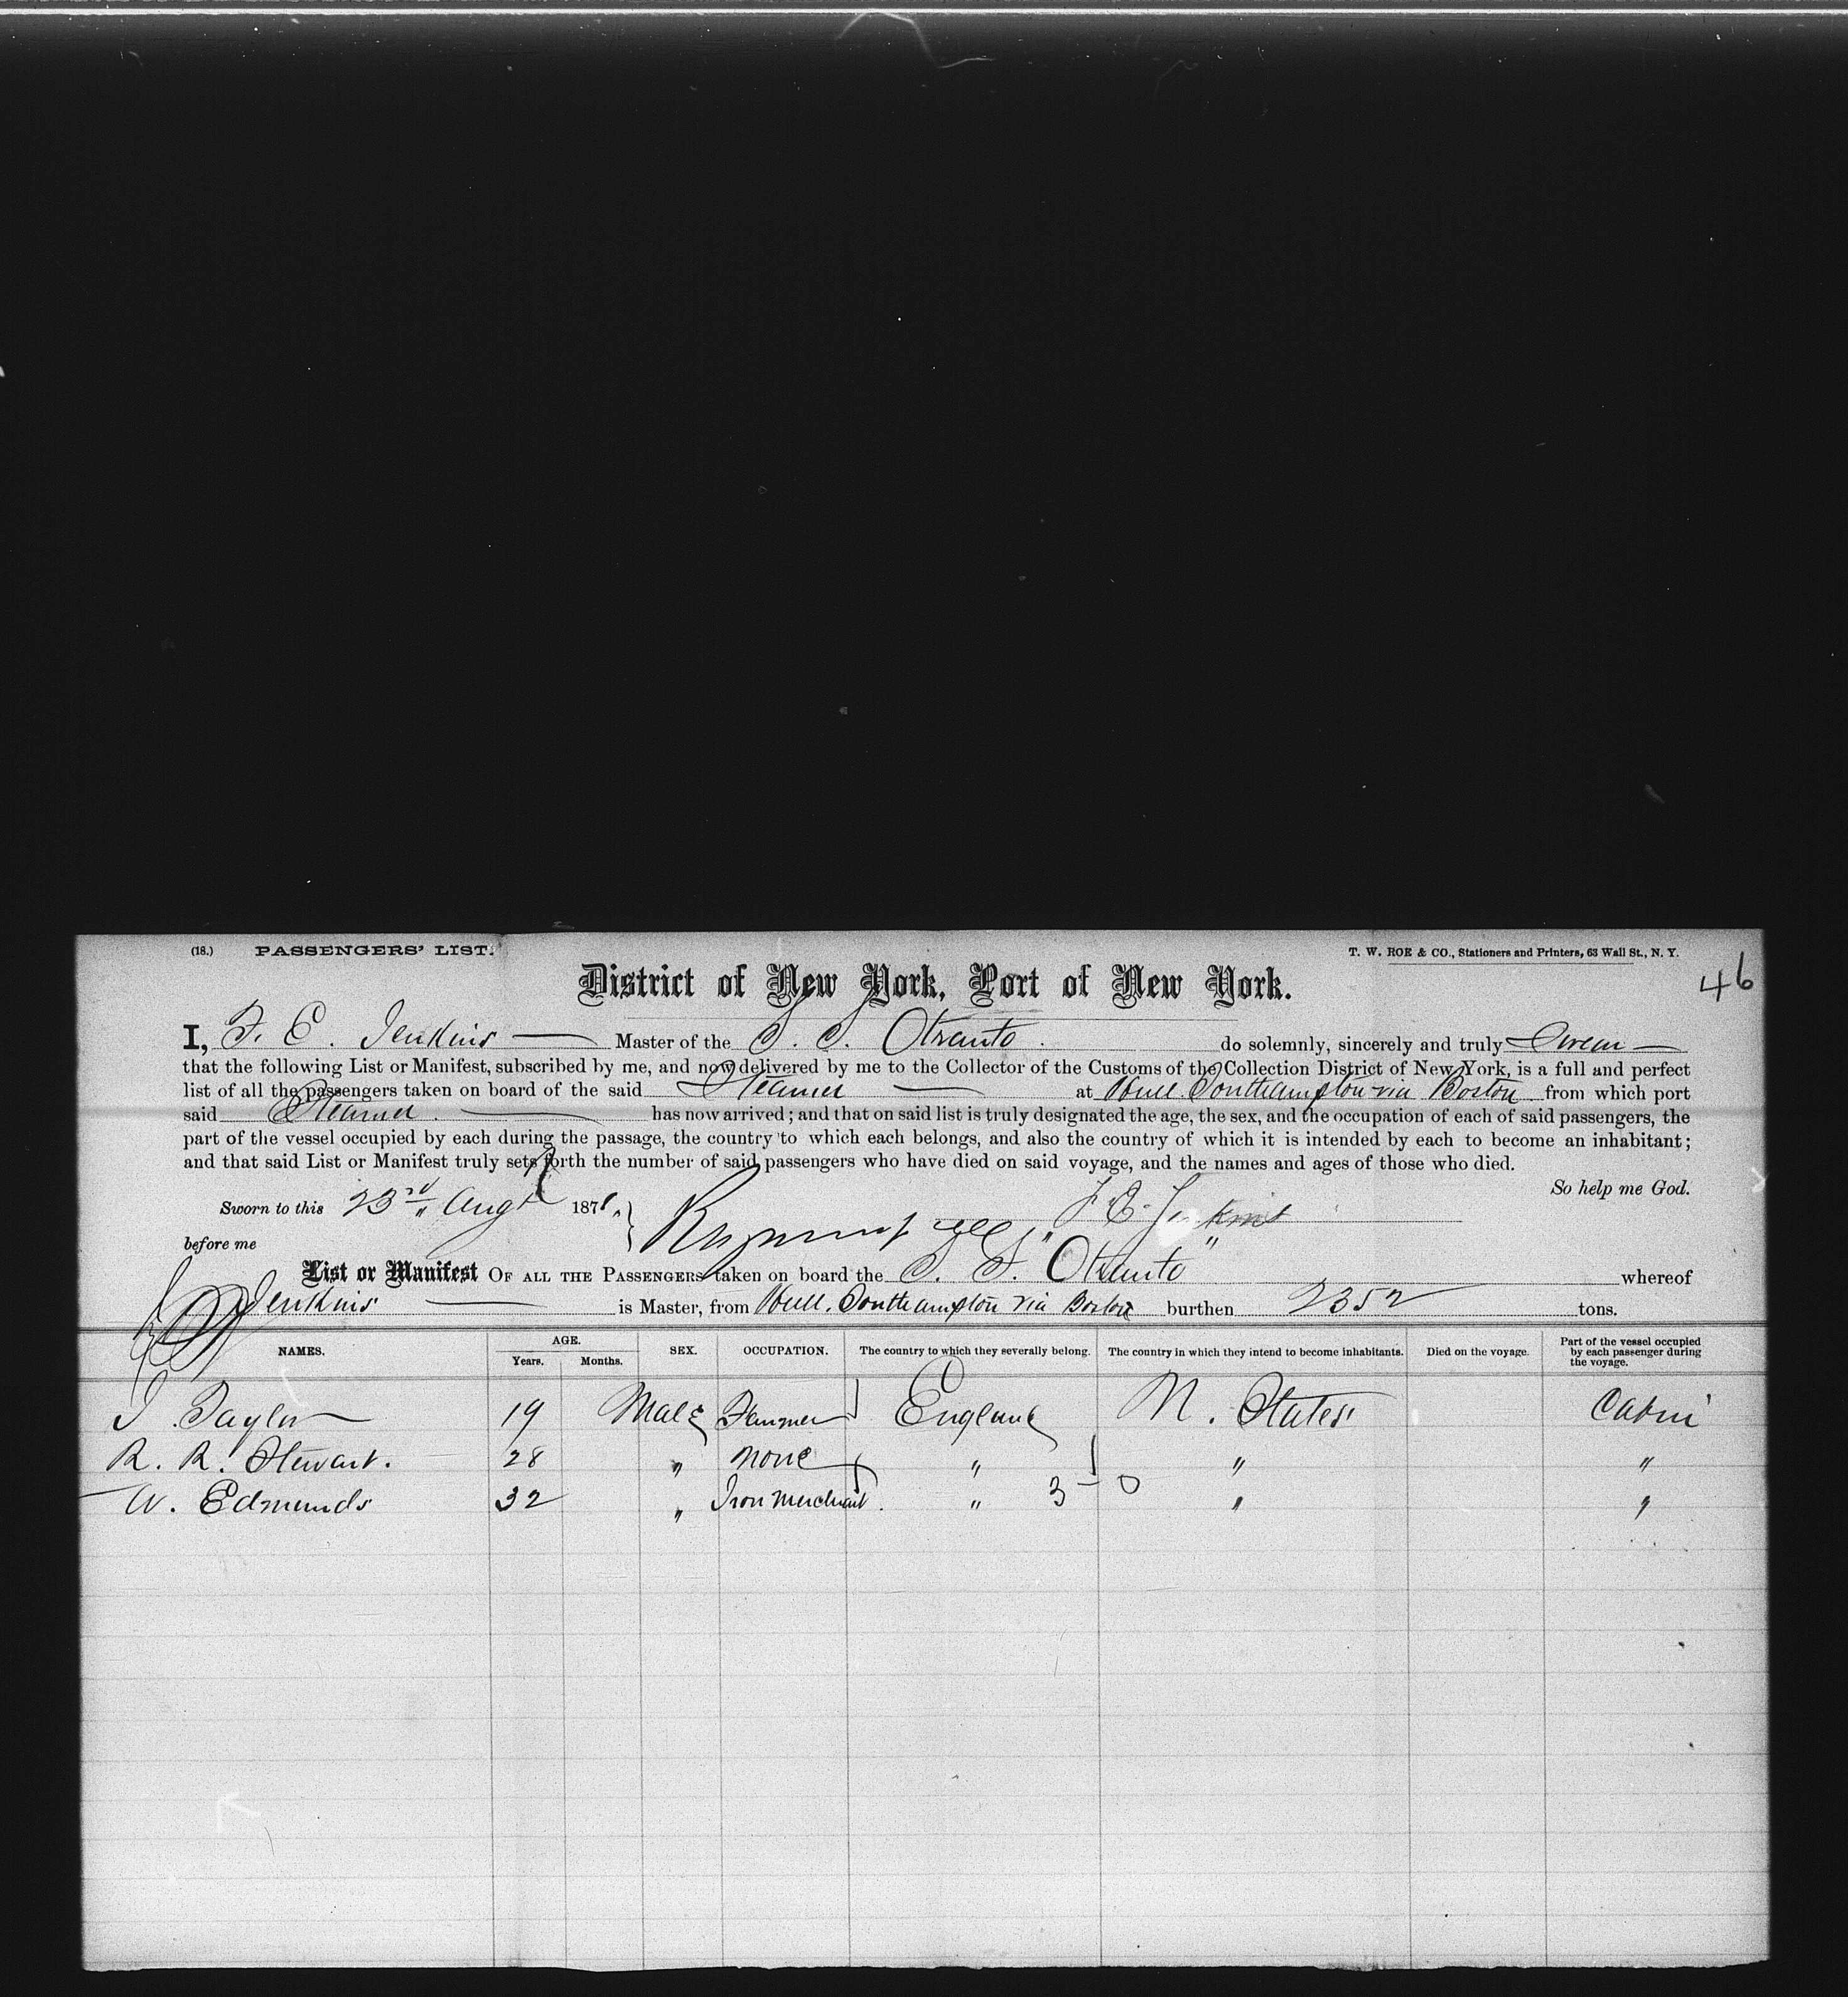 (18.) PASSENGERS' LIST. T. W. ROE & CO., Stationers and Printers, 63 Wall St., N. Y.
46
District of New York, Port of New York.
I, F. E. Jenkins Master of the S. S. Otranto do solemnly, sincerely and truly Swear
that the following List or Manifest, subscribed by me, and now delivered by me to the Collector of the Customs of the Collection District of New York, is a full and perfect
list of all the passengers taken on board of the said Steamer at Hull Southampton via Boston from which port
said Steamer has now arrived; and that on said list is truly designated the age, the sex, and the occupation of each of said passengers, the
part of the vessel occupied by each during the passage, the country to which each belongs, and also the country of which it is intended by each to become an inhabitant;
and that said List or Manifest truly sets forth the number of said passengers who have died on said voyage, and the names and ages of those who died.
So help me God.
Sworn to this 23rd Augt 1878 F E Jenkins
before me
List or Manifest OF ALL THE PASSENGERS taken on board the S. S. "Otranto" whereof
Jenkins is Master, from Hull. Southampton via Boston burthen 2352 tons.
NAMES. AGE. Years. Months. SEX. OCCUPATION. The country to which they severally belong. The country in which they intend to become inhabitants. Died on the voyage. Part of the vessel occupied by each passenger during the voyage.
Taylor 19 Male Farmer England States Cabin
R. R. Stewart. 28 " None " " "
W. Edmunds 32 " Iron Merchant. " 3 - 0 " "